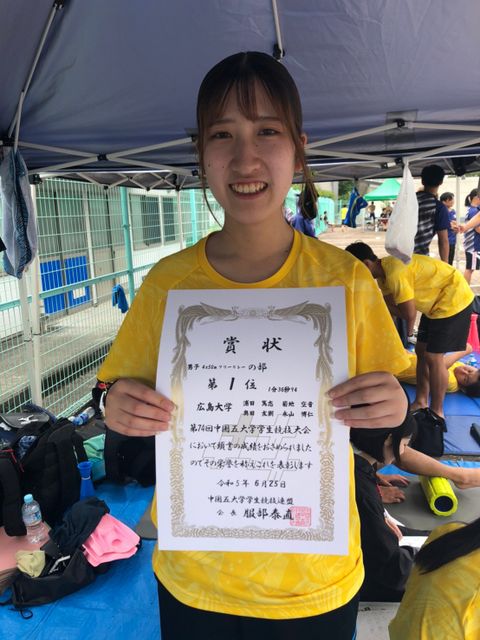 賞状
男子 4×50m フリーリレー の部
第 1 位 1分36秒94
広島大学 濱田 篤志 菊地 空音
奥田 友潤 永山 博仁
第74回中国五大学学生競技大会
において頭書の成績をおさめられました
のでその栄誉を称えこれを表彰します
令和5年 6月25日
中国五大学学生競技連盟
会長 服部泰直